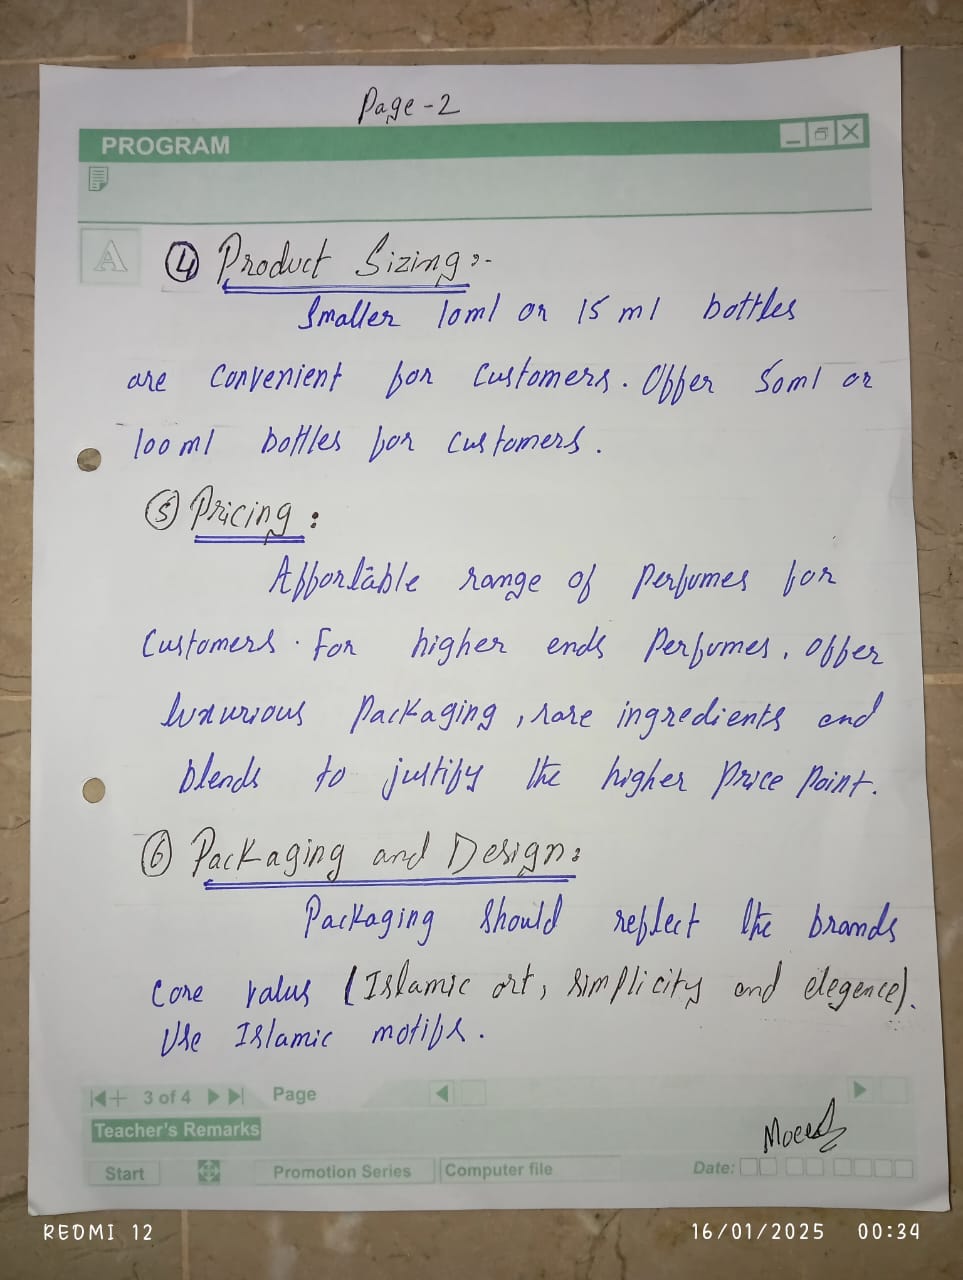 Page-2
PROGRAM
A
④ Product Sizing:-
Smaller 10ml or 15 ml bottles
are convenient for customers. Offer 50ml or
100 ml bottles for customers.
⑤ Pricing :
Affordable range of perfumes for
Customers. For higher ends Perfumes, offer
luxurious Packaging, rare ingredients and
blends to justify the higher Price Point.
⑥ Packaging and Design:
Packaging should reflect the brands
core valus (Islamic art, simplicity and elegence).
Use Islamic motifs.
3 of 4 Page
Teacher's Remarks
Start Promotion Series Computer file Date:
REDMI 12 16/01/2025 00:34